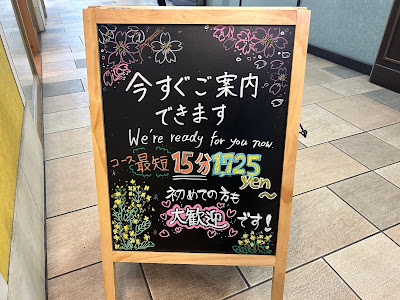 今すぐご案内
できます
We're ready for you now.
コース最短 15分 1,725 yen〜
初めての方も
大歓迎です!